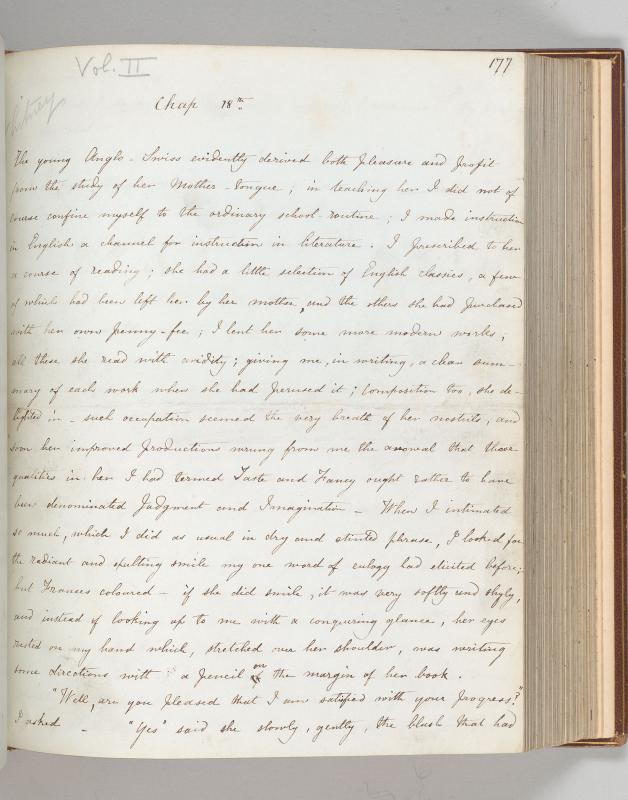 Vol. II
177
Whitney
Chap 18th.
The young Anglo-Swiss evidently derived both pleasure and profit
from the study of her Mother-tongue; in teaching her I did not of
course confine myself to the ordinary school-routine; I made instruction
in English a channel for instruction in literature. I prescribed to her
a course of reading; she had a little selection of English classics, a few
of which had been left her by her mother, and the others she had purchased
with her own penny-fee; I lent her some more modern works;
all these she read with avidity; giving me, in writing, a clear sum-
mary of each work when she had perused it; Composition too, she de-
lighted in - such occupation seemed the very breath of her nostrils, and
soon her improved productions wrung from me the avowal that those
qualities in her I had termed Taste and Fancy ought rather to have
been denominated Judgment and Imagination - When I intimated
so much, which I did as usual in dry and stinted phrase, I looked for
the radiant and exulting smile my one word of eulogy had elicited before;
but Frances coloured - if she did smile, it was very softly and shyly,
and instead of looking up to me with a conquering glance, her eyes
rested on my hand which, stretched over her shoulder, was writing
some directions with a pencil on the margin of her book.
"Well, are you pleased that I am satisfied with your progress?"
I asked - "Yes" said she slowly, gently, the blush that had